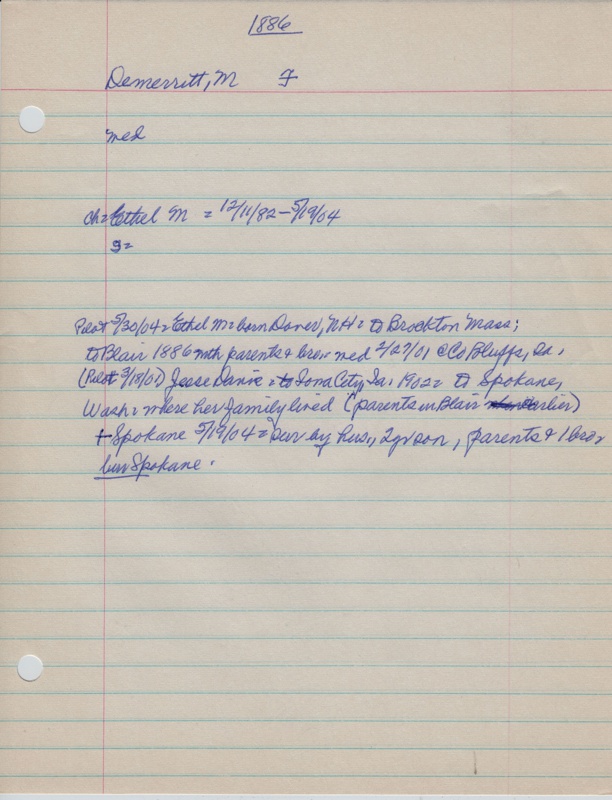 1886
Demerritt, M
med
ch = Ethel M = 12/11/82 - 5/19/04
g =
Pilot 5/30/04 = Ethel M = born Dover, NH = to Brockton Mass;
to Blair 1886 with parents & bro = med 2/27/01 @ Co Bluffs, Ia,
(Pilot 3/18/01) Jesse Davis = to Iowa City, Ia, 1902 = to Spokane,
Wash = where her family lived (parents in Blair earlier)
+ Spokane 5/19/04 = sur by hus., 2 yr son, parents & 1 bro =
bur Spokane.